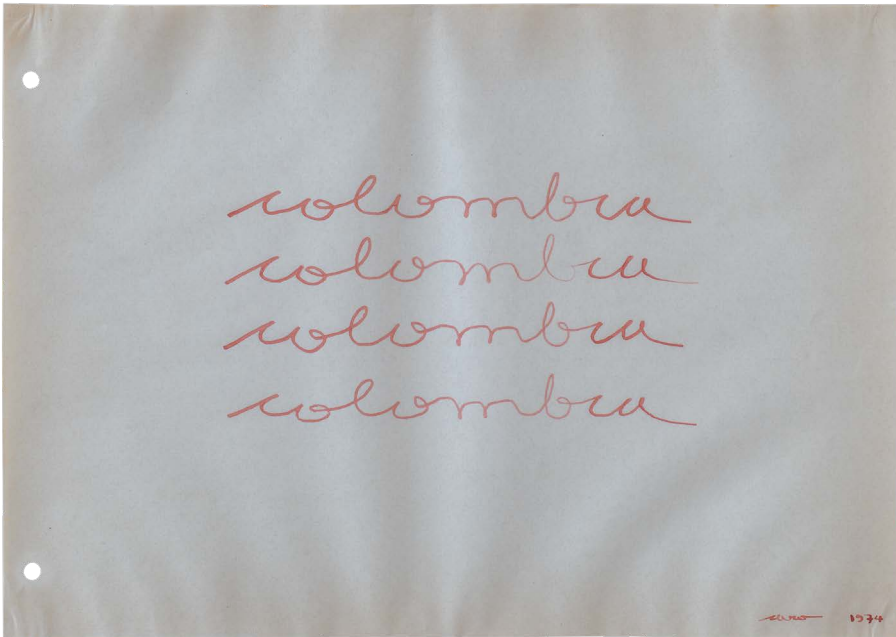 colombia
colombia
colombia
colombia
caro 1974